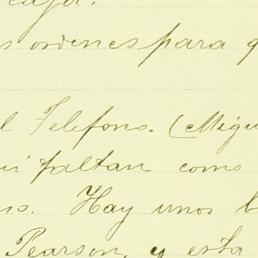 caja.
s ordenes para q
l Telefono. (Migu
ui faltan como
no. Hay unos b
Pearson, y esta